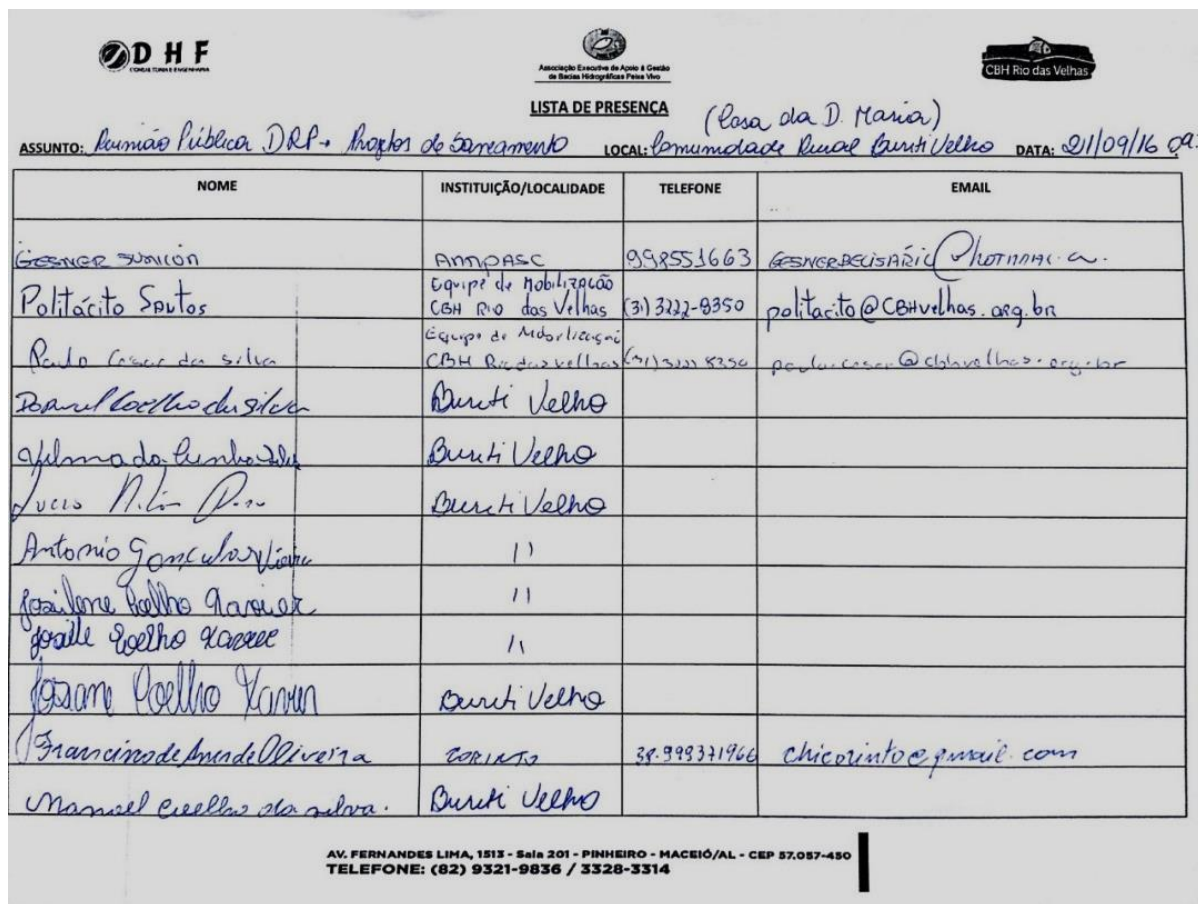 DHF
CONSULTORIA E ENGENHARIA
Associação Executiva de Apoio à Gestão
de Bacias Hidrográficas Peixe Vivo
CBH Rio das Velhas
LISTA DE PRESENÇA
(Casa da D. Maria)
ASSUNTO: Reunião Pública DRP - Projetos de Saneamento LOCAL: Comunidade Rural Buriti Velho DATA: 21/09/16
NOME INSTITUIÇÃO/LOCALIDADE TELEFONE EMAIL
GESNER AMPASC 998551663
Equipe de Mobilização
Politácito Santos CBH Rio das Velhas (31) 3222-8350 politacito@CBHvelhas.org.br
Equipe de Mobilização
Paulo Cesar da silva CBH Rio das Velhas (31) 3222 8350 paulo.cesar@cbhvelhas.org.br
Coelho da Silva Buriti Velho
da Cunha Buriti Velho
Lucio Buriti Velho
Antonio Gonçalves Vieira 11
Josilene Coelho Xavier 11
Coelho Xavier 11
Josane Coelho Xavier Buriti Velho
Oliveira CORINTO 38.998371966 chicorinto@gmail.com
Manoel Coelho da silva. Buriti Velho
AV. FERNANDES LIMA, 1513 - Sala 201 - PINHEIRO - MACEIÓ/AL - CEP 57.057-450
TELEFONE: (82) 9321-9836 / 3328-3314